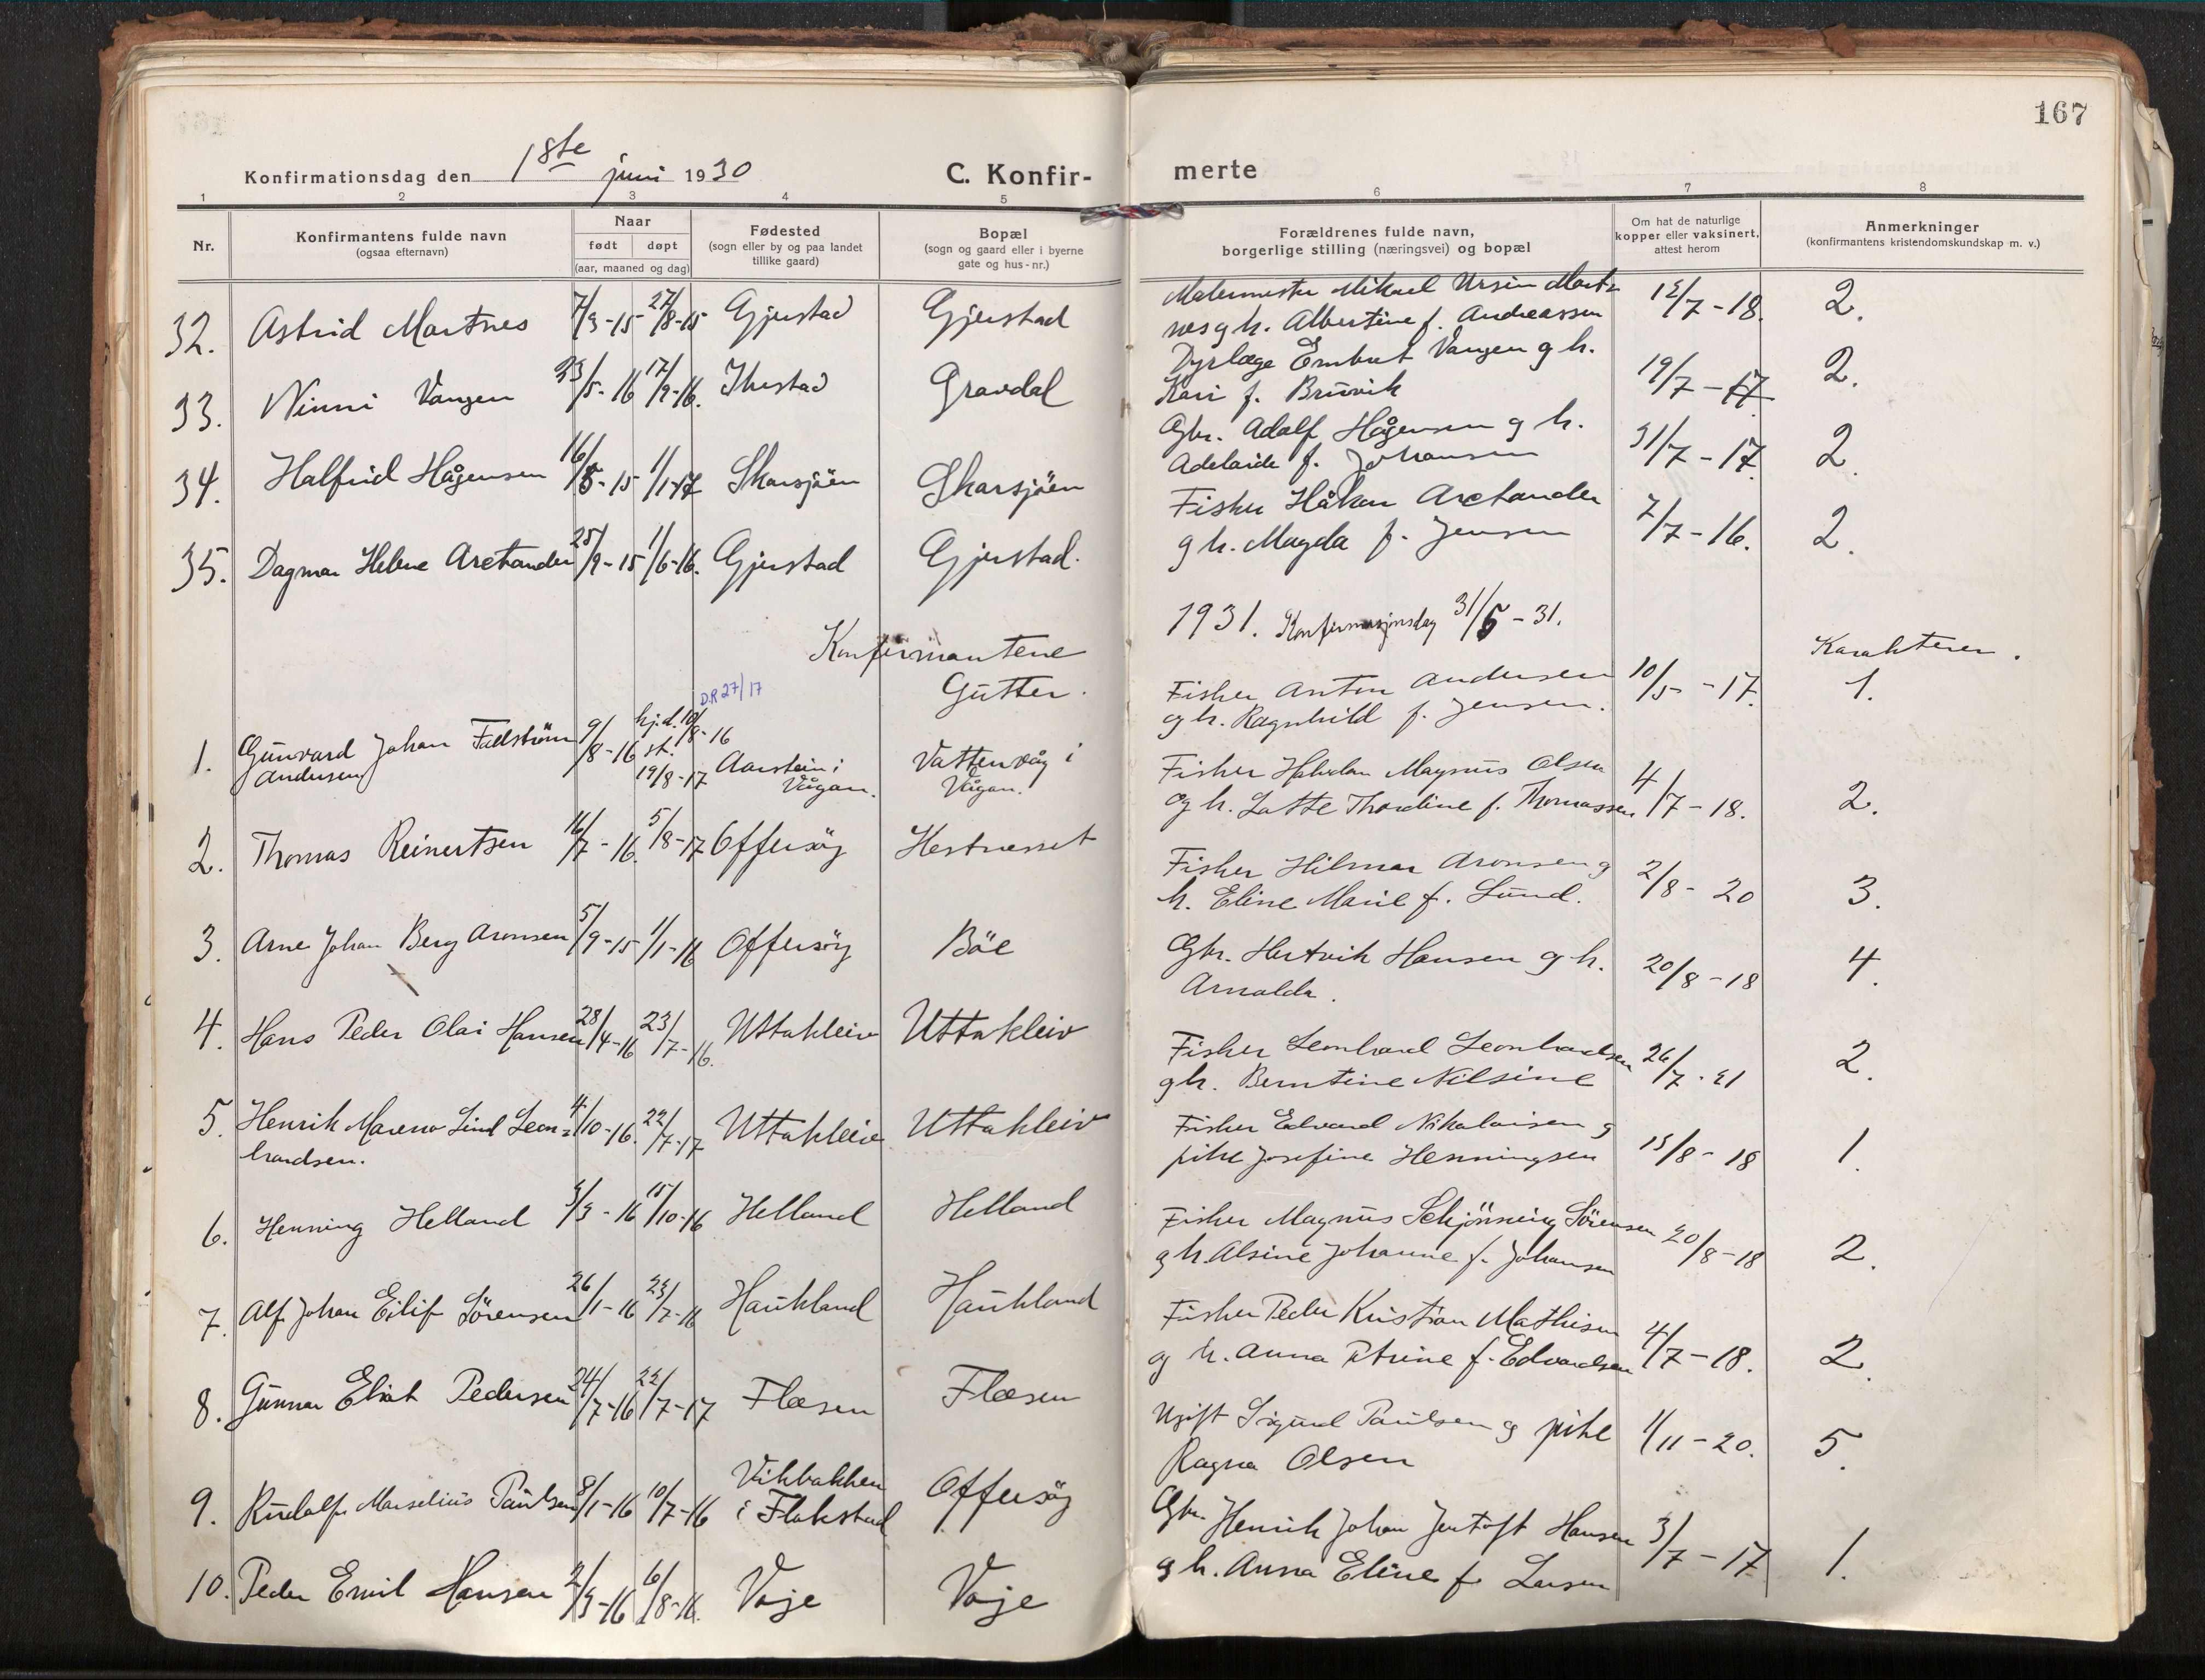 167
Konfirmationsdag den 18te juni 1930
C. Konfir-
merte
1 2 3 4 5 6 7 8
Nr.
Konfirmantens fulde navn
(ogsaa efternavn)
Naar
født døpt
(aar, maaned og dag)
Fødested
(sogn eller by og paa landet
tillike gaard)
Bopæl
(sogn og gaard eller i byerne
gate og hus-nr.)
Forældrenes fulde navn,
borgerlige stilling (næringsvei) og bopæl
Om hat de naturlige
kopper eller vaksinert,
attest herom
Anmerkninger
(konfirmantens kristendomskundskap m. v.)
32. Astrid Mortnes 7/3-15 27/8-15 Gjerstad Gjerstad
Malermester Mikael Ursin Mort-
nes g h. Albertine f. Andreassen 12/7-18. 2.
33. Ninni Vangen 23/5-16 17/9-16. Ihestad Gravdal
Dyrlæge Vangen g h.
Kari f. Bruvik 19/7-17 2.
34. Halfrid Hågensen 16/8-15 1/1-17 Skarsjöen Skarsjöen
Gbr. Adolf Hågensen g h.
Adelaide f. Johansen 31/7-17 2.
35. Dagmar Helene Arctander 25/9-15 1/6-16. Gjerstad Gjerstad.
Fisker Håkon Arctander
g h. Magda f. Jensen 7/7-16. 2.
Konfirmantene
1931. Konfirmasjonsdag 31/5-31.
Gutter.
Karakterer.
D.R 27/17
1. Gunvard Johan Fallström
Andersen 9/8-16 hj.d. 10/8-16
st.
19/8-17 Aarstein i
Vågan. Vattervåg i
Vågan.
Fisker Anton Andersen
og h. Ragnhild f. Jensen. 10/5-17. 1.
2. Thomas Reinertsen 16/7-16. 5/8-17 Offersöy Hestnesset
Fisker Halvdan Magnus Olsen
og h. Lotte Thordine f. Thomassen 4/7-18. 2.
3. Arne Johan Berg Aronsen 5/9-15 1/1-16 Offersöy Böe
Fisker Hilmar Aronsen g
h. Eline Marie f. Lund. 2/8-20 3.
4. Hans Peder Olai Hansen 28/4-16 23/7-16. Uttakleiv Uttakleiv
Gbr. Hertvik Hansen g h.
Arnalda. 20/8-18 4.
5. Henrik Mareno Lind Leon-
hardsen. 4/10-16. 22/7-17 Uttakleiv Uttakleiv
Fisker Leonhard Leonhardsen
g h. Berntine Nilsine 26/7-21 2.
6. Henning Helland 3/3-16 15/10-16 Helland Helland
Fisker Edvard Nikolaisen g
pike Josefine Henningsen 15/8-18 1.
7. Alf Johan Eilif Sörensen 26/1-16 23/7-16 Haukland Haukland
Fisker Magnus Schjönning Sörensen
g h. Alsine Johanne f. Johansen 20/8-18 2.
8. Gunnar Eliot Pedersen 24/7-16 22/7-17 Flæsen Flæsen
Fisker Peder Kristian Mathisen
og h. Anna Petrine f. Edvardsen 4/7-18. 2.
9. Rudolf Marselius Paulsen 8/1-16 10/7-16 Vikbakken
i Flakstad Offersöy
Ugift Sigurd Paulsen g pike
Ragna Olsen 1/11-20. 5.
10. Peder Emil Hansen 2/3-16 6/8-16. Voje Voje
Gbr. Henrik Johan Jentoft Hansen
g h. Anna Eline f. Larsen 3/7-17 1.